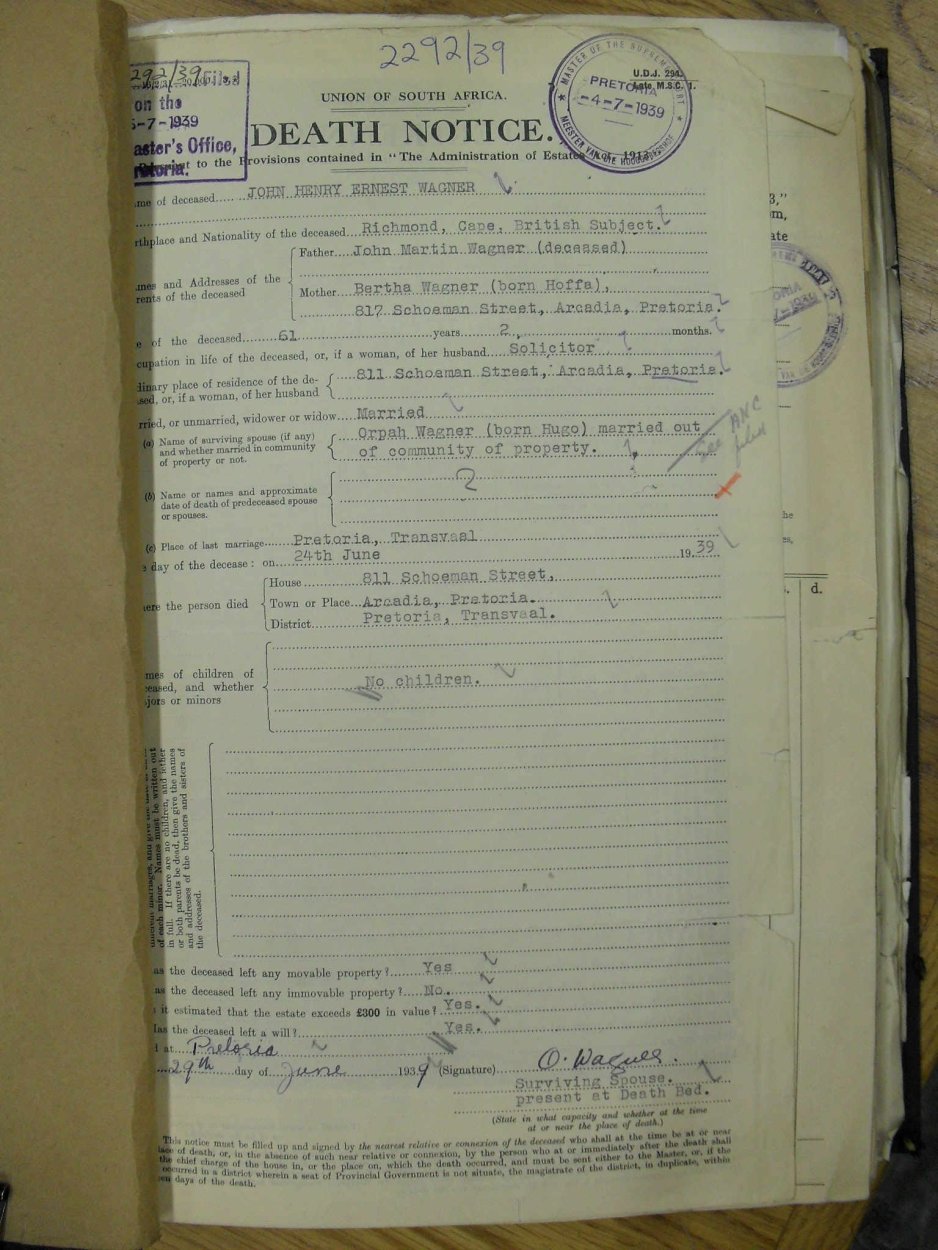 2292/39
292/39 Filed
on the
5-7-1939
aster's Office,
retoria.
MASTER OF THE SUPREME COURT
PRETORIA
-4-7-1939
MEESTER VAN DIE HOOGGEREGSHOF
U.D.J. 294.
Late M.S.C. 1.
UNION OF SOUTH AFRICA.
DEATH NOTICE.
to the Provisions contained in "The Administration of Estates 1913,
me of deceased..... JOHN HENRY ERNEST WAGNER
rthplace and Nationality of the deceased Richmond, Cape, British Subject.
mes and Addresses of the
rents of the deceased
Father.... John Martin Wagner (deceased)
Mother.... Bertha Wagner (born Hoffa),
817 Schoeman Street, Arcadia, Pretoria.
e of the deceased 61 years 2, months.
cupation in life of the deceased, or, if a woman, of her husband Solicitor
dinary place of residence of the de-
sed, or, if a woman, of her husband
811 Schoeman Street, Arcadia, Pretoria.
rried, or unmarried, widower or widow.... Married
(a) Name of surviving spouse (if any)
and whether married in community
of property or not.
Orpah Wagner (born Hugo) married out
of community of property.
see ANC
filed
(b) Name or names and approximate
date of death of predeceased spouse
or spouses.
(c) Place of last marriage Pretoria, Transvaal
e day of the decease: on 24th June 1939
ere the person died
House 811 Schoeman Street,
Town or Place... Arcadia, Pretoria.
District Pretoria, Transvaal.
mes of children of
ceased, and whether
jors or minors
No children.
of each minor. Names must be written out
in full. If there are no children, and either
or both parents be dead, then give the names
and addresses of the brothers and sisters of
the deceased.
as the deceased left any movable property? Yes
as the deceased left any immovable property? No.
it estimated that the estate exceeds £300 in value? Yes.
Has the deceased left a will? Yes.
d at Pretoria
29th day of June 1939 (Signature) O. Wagner.
Surviving Spouse.
present at Death Bed.
(State in what capacity and whether at the time
at or near the place of death.)
This notice must be filled up and signed by the nearest relative or connexion of the deceased who shall at the time be at or near
lace of death, or, in the absence of such near relative or connexion, by the person who at or immediately after the death shall
the chief charge of the house in, or the place on, which the death occurred, and must be sent either to the Master, or, if the
occurred in a district wherein a seat of Provincial Government is not situate, the magistrate of the district, in duplicate, within
days of the death.
d.